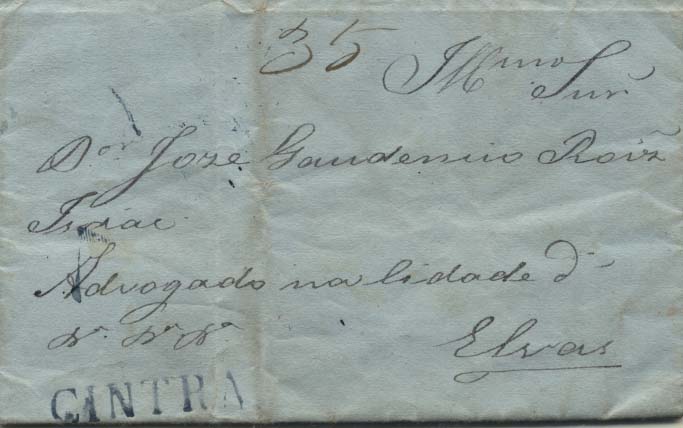 35
Illmo
Snr
Dor Joze Gaudencio Roiz
Isaac
Advogado na Cidade d'
Elvas
CINTRA